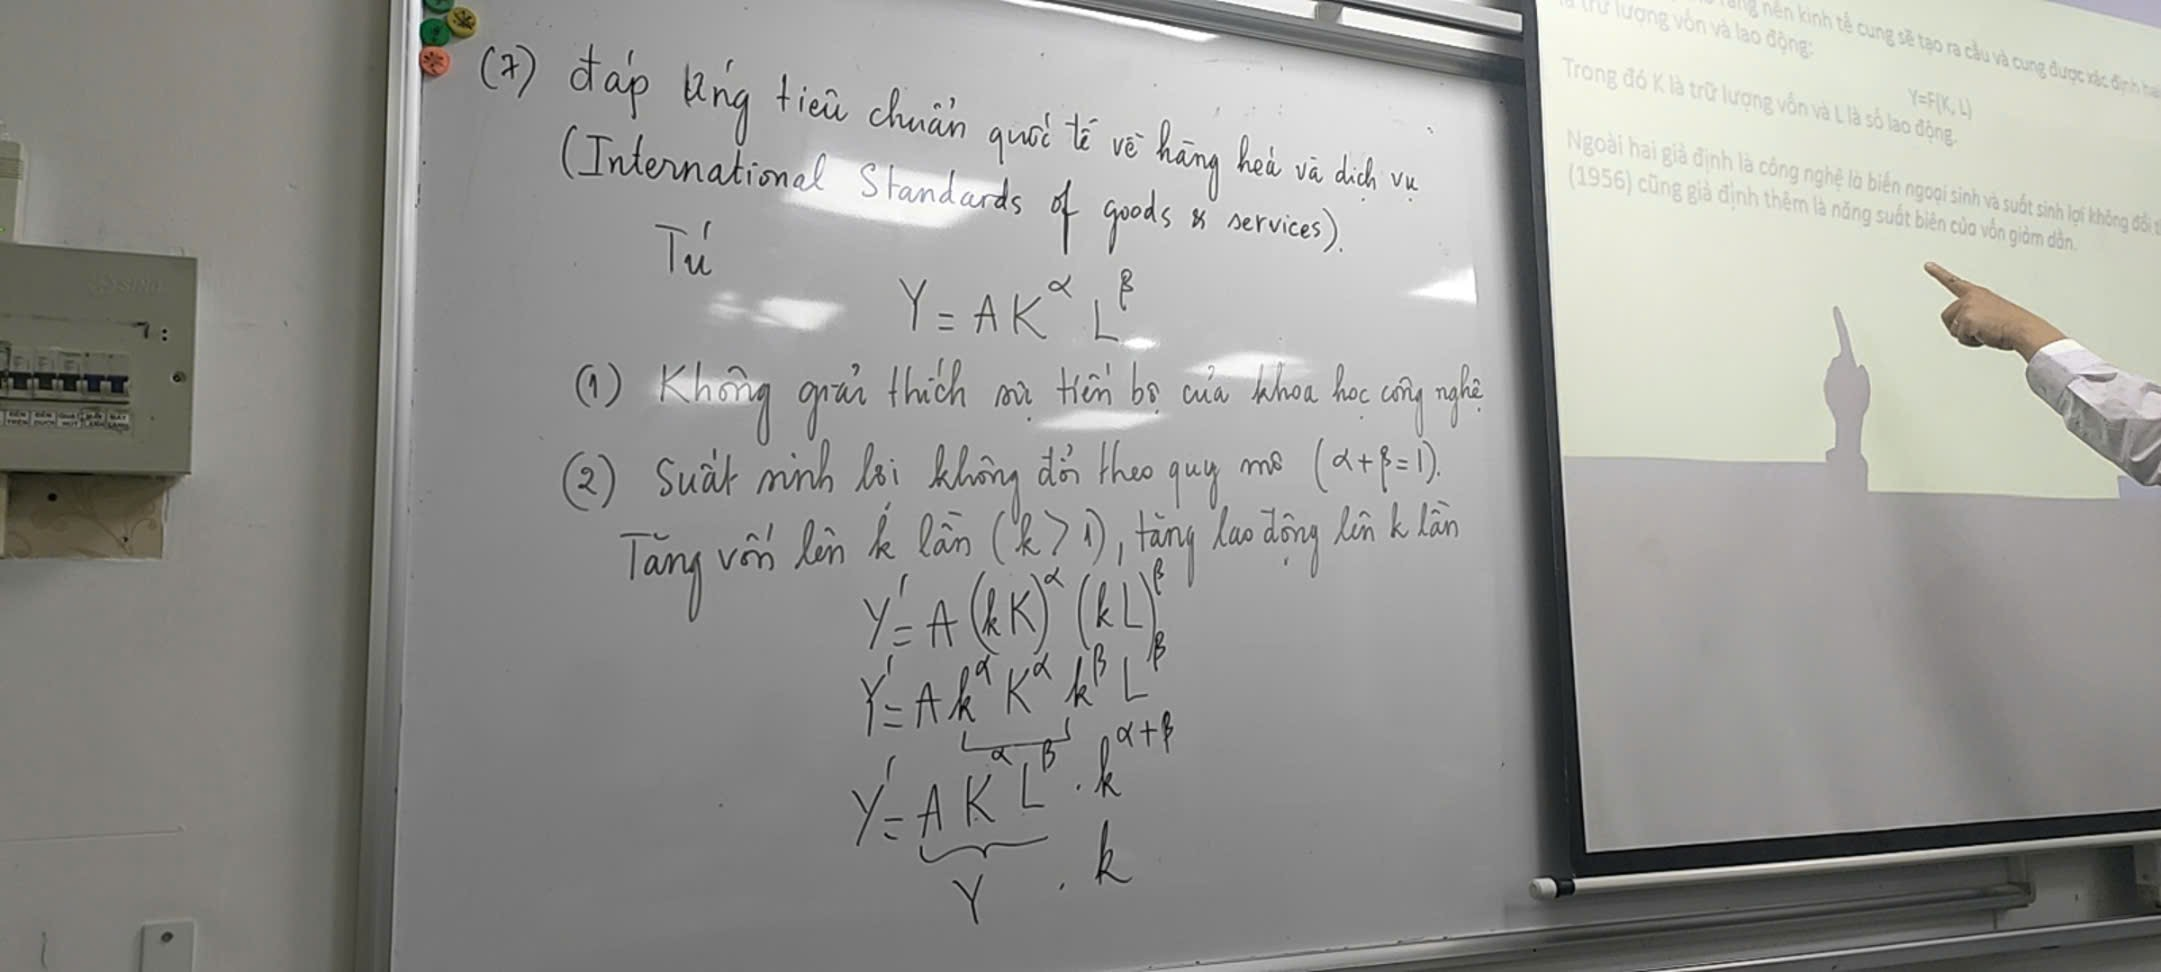 (7) đáp ứng tiêu chuẩn quốc tế về hàng hoá và dịch vụ
(International Standards of goods & services).
Tú
Y = A K^α L^β
(1) Không giải thích sự tiến bộ của khoa học công nghệ
(2) Suất sinh lợi không đổi theo quy mô (α+β=1).
Tăng vốn lên k lần (k > 1), tăng lao động lên k lần
Y' = A (kK)^α (kL)^β
Y' = A k^α K^α k^β L^β
Y' = A K^α L^β . k^(α+β)
Y . k
nền kinh tế cung sẽ tạo ra cầu và cung được xác định
trữ lượng vốn và lao động:
Y=F(K, L)
Trong đó K là trữ lượng vốn và L là số lao động.
Ngoài hai giả định là công nghệ là biến ngoại sinh và suất sinh lợi không đổi
(1956) cũng giả định thêm là năng suất biên của vốn giảm dần.
SINO